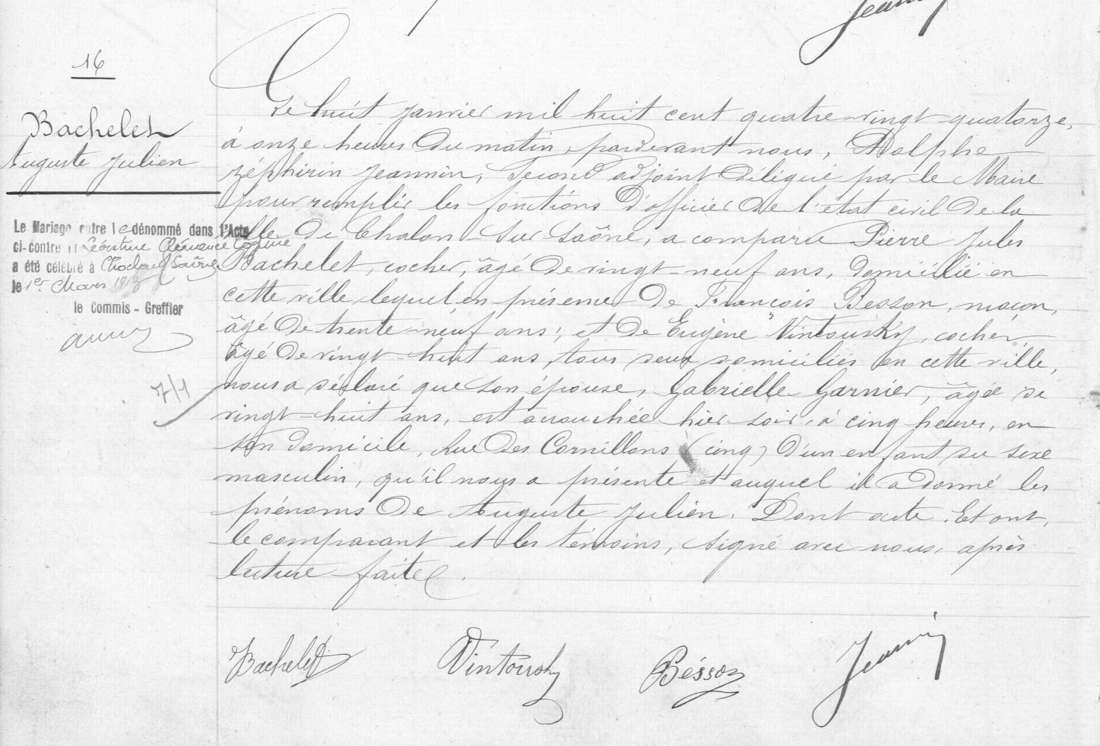 16
Bachelet
Auguste Julien
Le Mariage entre le dénommé dans l'Acte
ci-contre et
a été célébré à Saône
le 1er Mars
le Commis - Greffier
7/1
Le huit janvier mil huit cent quatre-vingt-quatorze,
à onze heures du matin, pardevant nous, Adolphe
Zéphirin Jeannin, second adjoint délégué par le Maire
pour remplir les fonctions d'officier de l'état civil de la
ville de Chalon-sur-Saône, a comparu Pierre Jules
Bachelet, cocher, âgé de vingt-neuf ans, domicilié en
cette ville, lequel en présence de François Besson, maçon,
âgé de trente-neuf ans, et de Eugène Vintousky, cocher,
âgé de vingt-huit ans, tous deux domiciliés en cette ville,
nous a déclaré que son épouse, Gabrielle Garnier, âgée de
vingt-huit ans, est accouchée hier soir, à cinq heures, en
son domicile, rue des Cornillons (cinq) d'un enfant du sexe
masculin, qu'il nous a présenté et auquel il a donné les
prénoms de Auguste Julien. Dont acte. Et ont,
le comparant et les témoins, signé avec nous, après
lecture faite.
Bachelet Vintousky Besson Jeannin